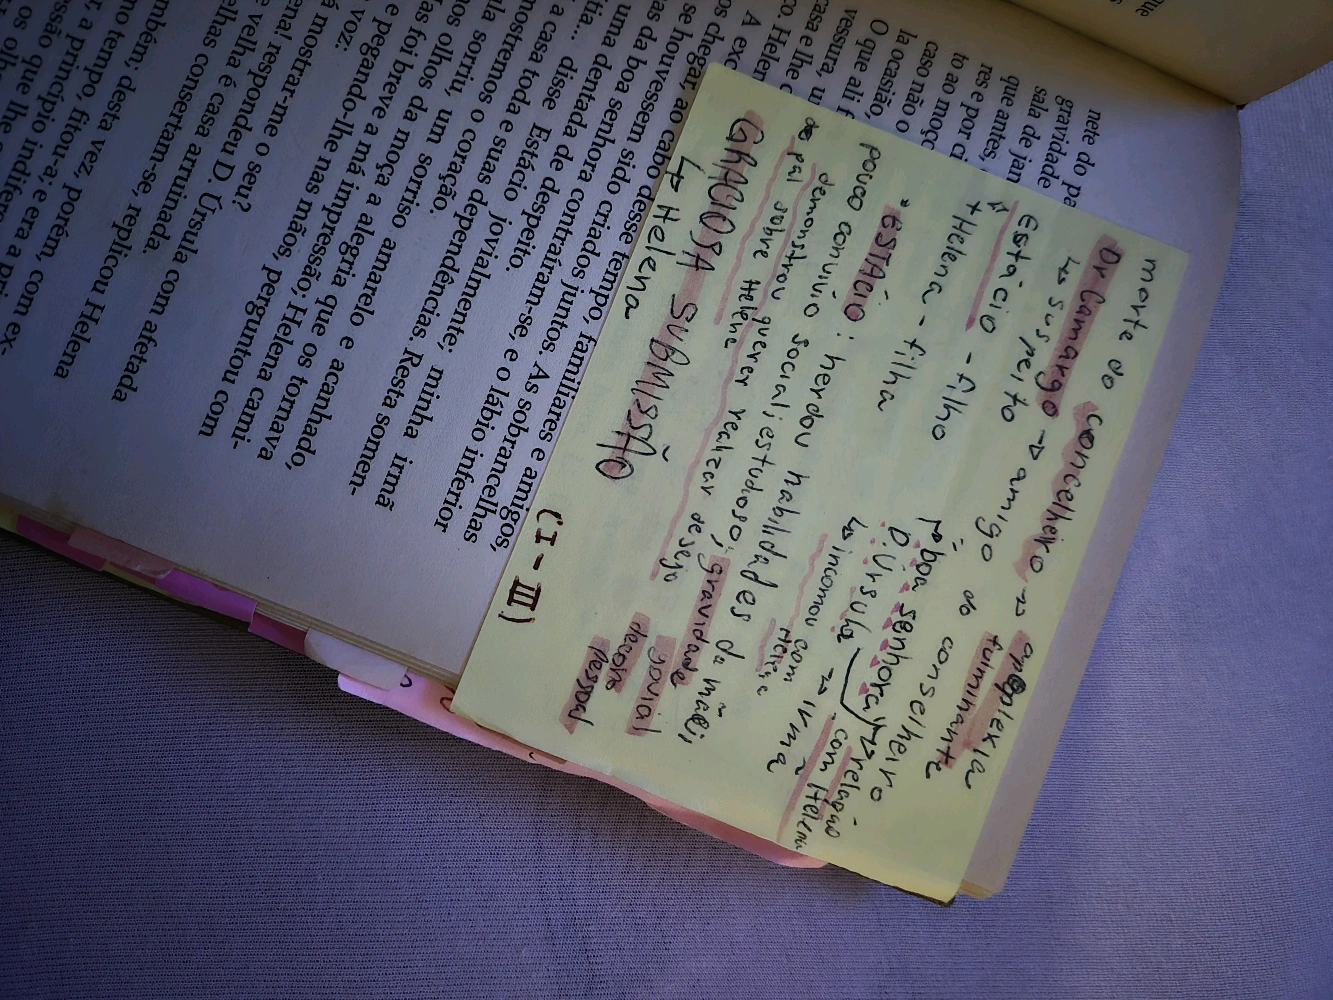 que
s
nete do pa
gravidade
sala de jan
que antes,
res e por ci
to ao moço
caso não o
la ocasião,
O que ali f
vessura, u
casa e lhe c
co. Helen
A exc
os chegar, ao cabo desse tempo, familiares e amigos,
se houvessem sido criados juntos. As sobrancelhas
as da boa senhora contraíram-se, e o lábio inferior
uma dentada de despeito.
tia... disse Estácio jovialmente; minha irmã
a casa toda e suas dependências. Resta somen-
mostremos o coração.
ula sorriu, um sorriso amarelo e acanhado,
nos olhos da moça a alegria que os tornava
as foi breve a má impressão; Helena cami-
e pegando-lhe nas mãos, perguntou com
voz:
á mostrar-me o seu?
ena! respondeu D. Úrsula com afetada
e velha é casa arruinada.
elhas consertam-se, replicou Helena
mbém, desta vez, porém, com ex-
no tempo, fitou-a; e era a pri-
r, a princípio indifere
ssão que lhe
os ol
morte do concelheiro → apoplexia
fulminante
Dr Camargo → amigo do conselheiro
↳ suspeito
Estácio - filho
+Helena - filha
boa senhora
D. Úrsula → irmã
relação
com Helena
↳ incomou com
Helena
*ESTÁCIO: herdou habilidades da mãe;
pouco convívio social; estudioso; gravidade
demonstrou querer realizar desejo
do pai sobre Helena
jovial
decoro
pessoal
GRACIOSA SUBMISSÃO
↳ Helena
(I-III)